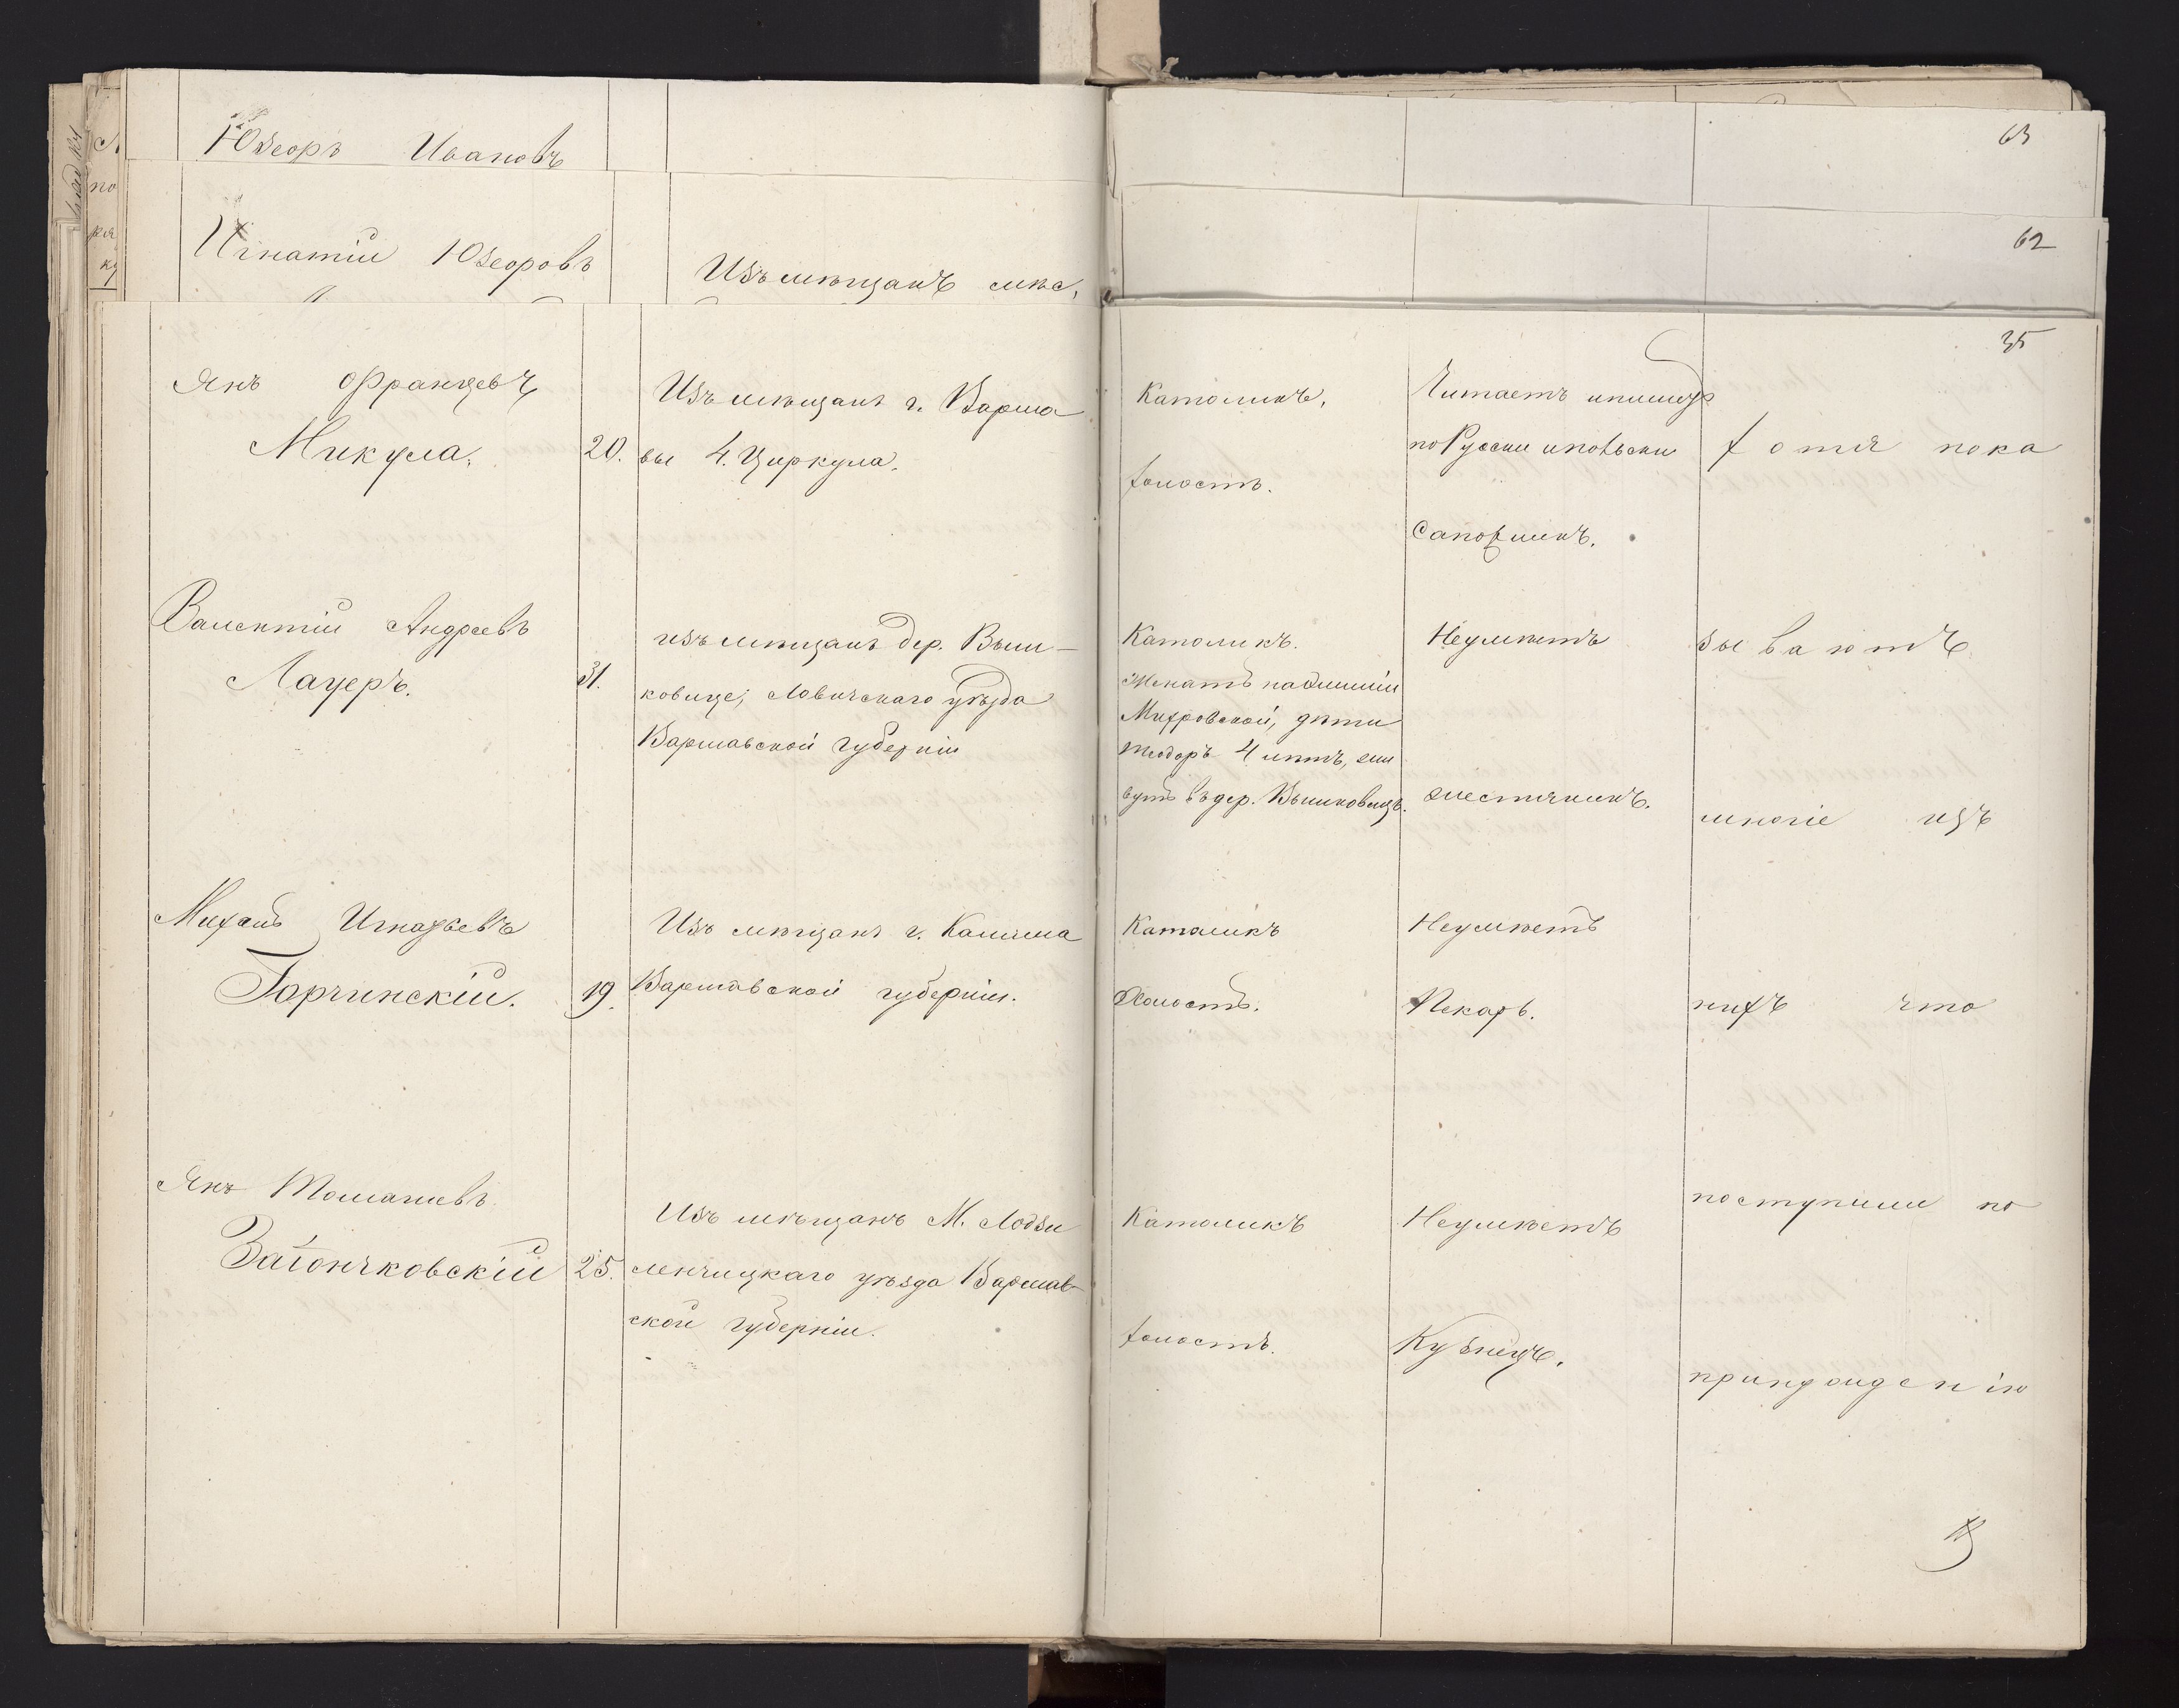 63
Юзефъ Ивановъ
62
Игнатій Юзефовъ
Изъ мѣщанъ мѣс,
35
Янъ Францевъ
Микула.
20.
Изъ мѣщанъ г. Варша
вы 4. Циркула.
Католикъ.
холостъ.
Читаетъ ипишетъ
поРусски ипольски
Сапожникъ.
хотя пока
Валентій Андреевъ
Лауеръ.
31.
изъ мѣщанъ дер. Выш-
ковице, Ловичскаго уѣзда
Варшавской губерніи
Католикъ.
Женатъ на
дѣти
Теодоръ 4 лѣтъ, жи
вутъ въ дер. Вышковицъ.
Неумѣетъ
жестяникъ.
зываютъ
многіе изъ
Михаилъ Игнатьевъ
Горчинскій.
19.
Изъ мѣщанъ г. Калиша
Варшавской губерніи.
Католикъ
Холостъ.
Неумѣетъ
Пекарь.
нихъ что
Янъ Томашевъ
Заіончковскій
25.
Изъ мѣщанъ М. Лодзи
Ленчицкаго уѣзда Варшав-
ской губерніи.
Католикъ
холостъ.
Неумѣетъ
Кузнецъ.
поступили по
принужденію